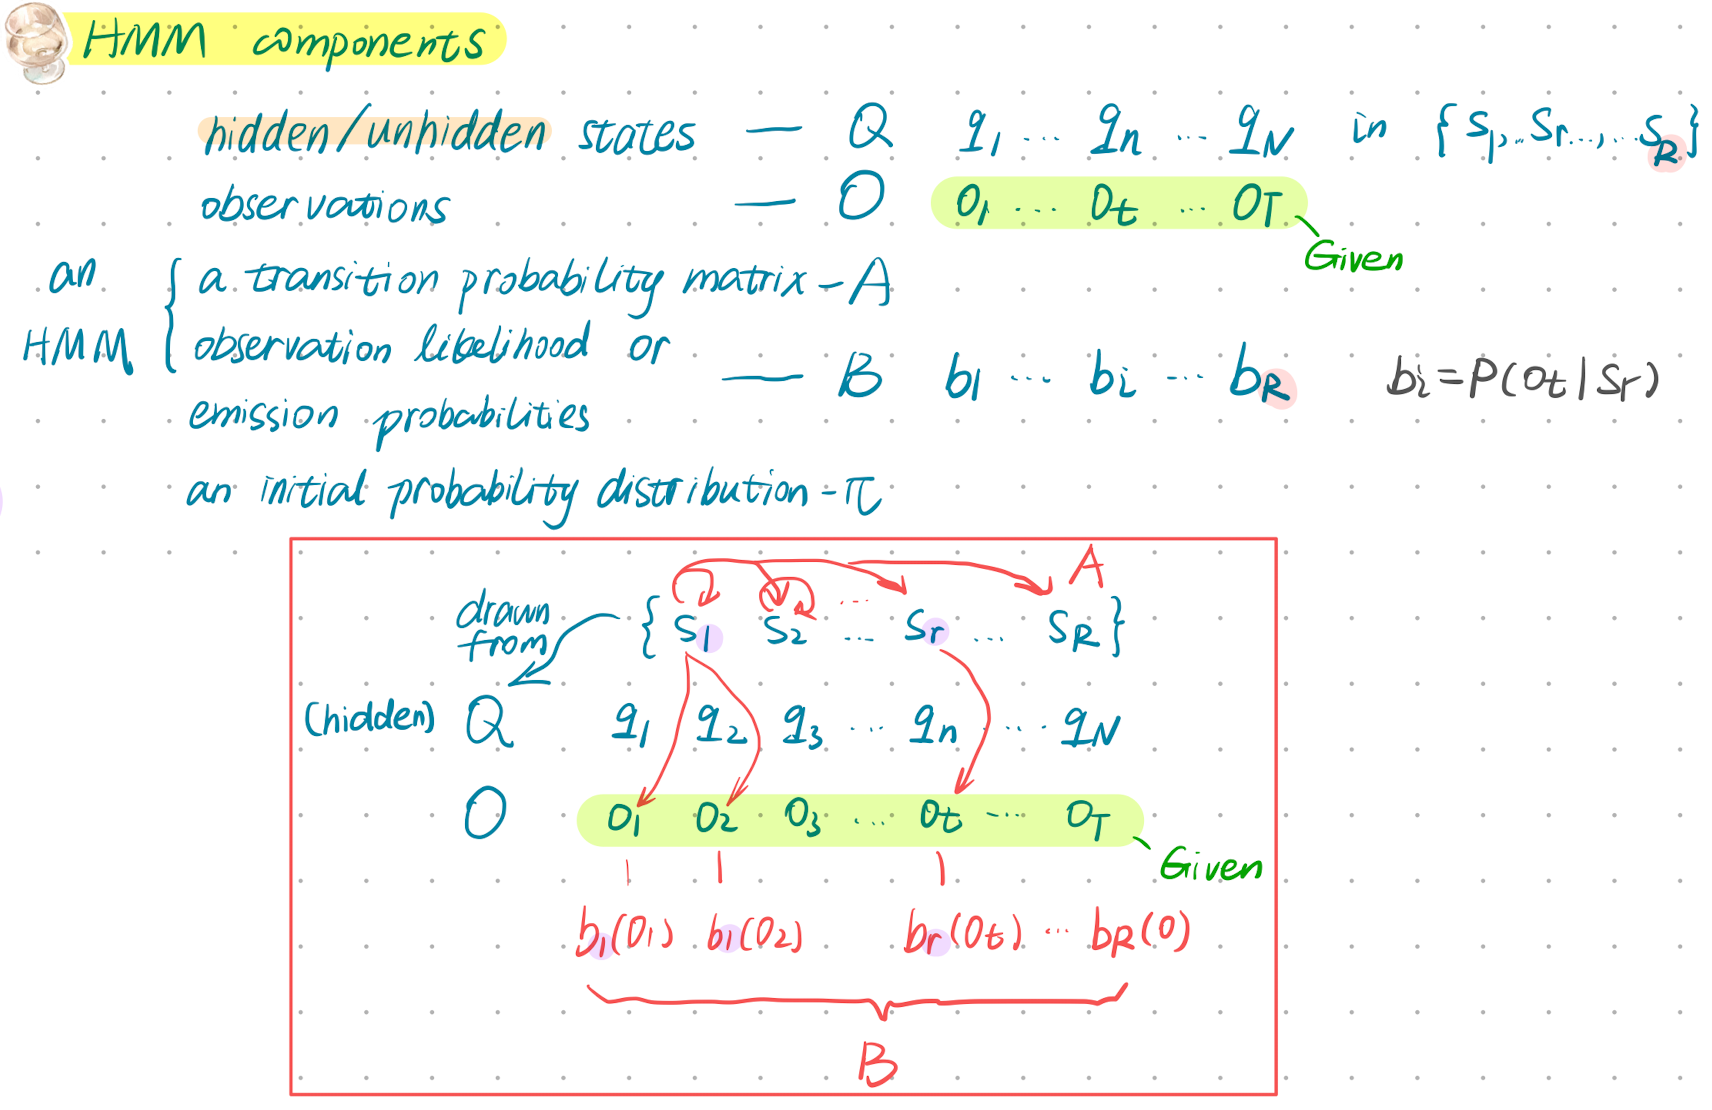 HMM components
hidden/unhidden states — Q q1 ... qn ... qN in {s1,..sr...,...sR}
observations — O o1 ... ot ... oT
Given
an HMM { a transition probability matrix - A
observation likelihood or
emission probabilities — B b1 ... bi ... bR bi=P(ot|sr)
an initial probability distribution - π
A
drawn from {s1 s2 ... sr ... sR}
(hidden) Q q1 q2 q3 ... qn ... qN
O o1 o2 o3 ... ot ... oT
Given
b1(o1) b1(o2) br(ot) ... bR(o)
B